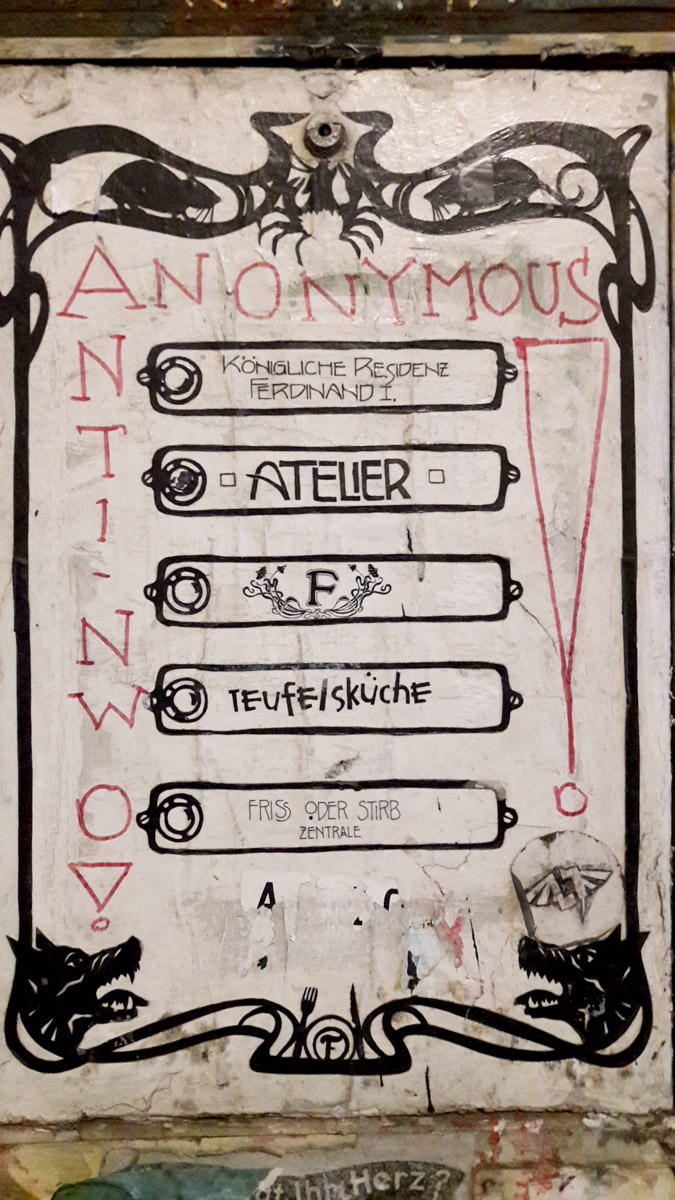 ANONYMOUS
NTI-NWO!
KÖNIGLICHE RESIDENZ
FERDINAND I.
ATELIER
F
TEUFELSKÜCHE
FRISS ODER STIRB
ZENTRALE
F
Ihr Herz?